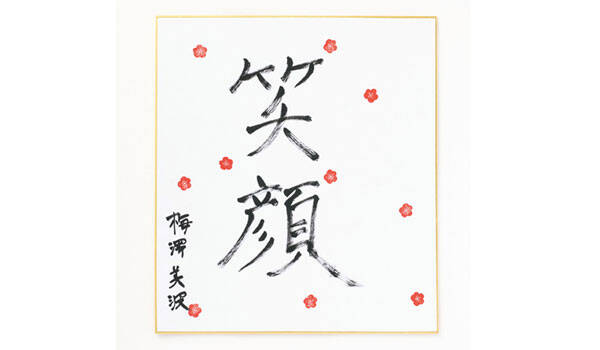 笑顔
梅澤美波